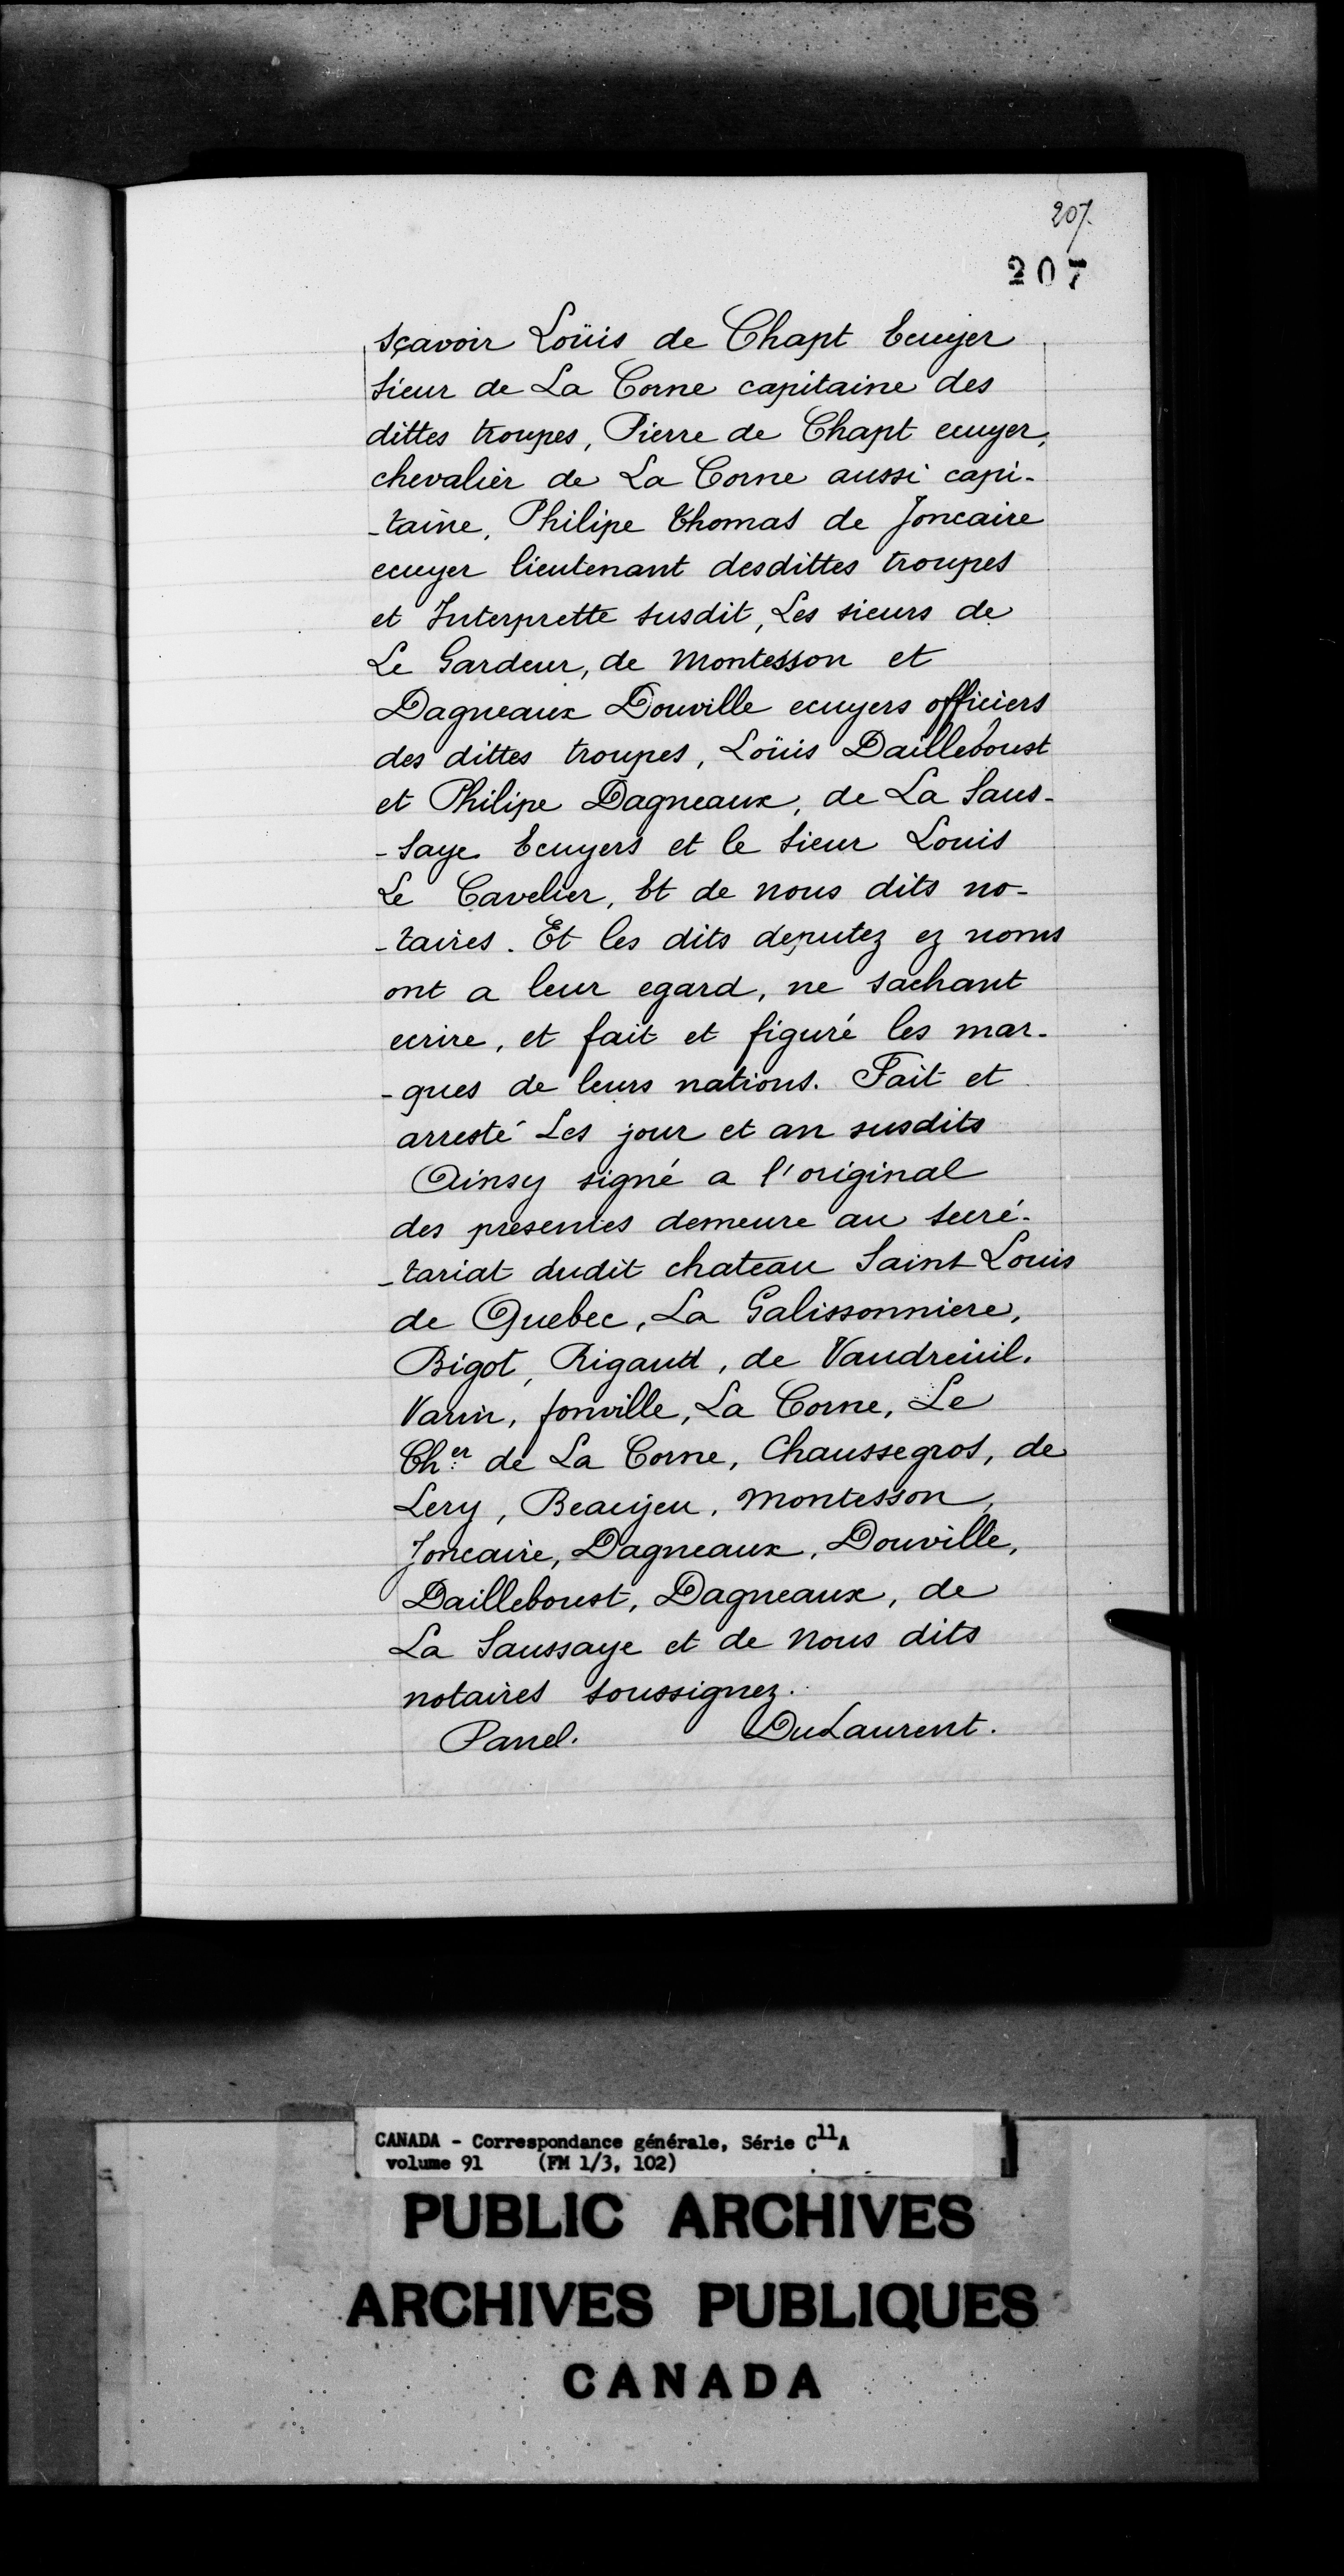 207.
207
sçavoir Loüis de Chapt Ecuyer
Sieur de La Corne capitaine des
dittes troupes, Pierre de Chapt ecuyer,
chevalier de La Corne aussi capi-
-taine, Philipe Thomas de Joncaire
ecuyer lieutenant desdittes troupes
et Interprette susdit, Les sieurs de
Le Gardeur, de Montesson et
Dagneaux Douville ecuyers officiers
des dittes troupes, Loüis Dailleboust
et Philipe Dagneaux, de La Saus-
-saye Ecuyers et le Sieur Louis
Le Cavelier, Et de nous dits no-
-taires. Et les dits deputez ez noms
ont a leur egard, ne sachant
ecrire, et fait et figuré les mar-
-ques de leurs nations. Fait et
arresté Les jour et an susdits
Ainsy signé a l'original
des presentes demeure au secré-
-tariat dudit chateau Saint Louis
de Quebec, La Galissonniere,
Bigot, Rigaud, de Vaudreuil.
Varin, Jonville, La Corne, Le
Ch:er de La Corne, Chaussegros, de
Lery, Beaujeu, Montesson,
Joncaire, Dagneaux, Douville,
Dailleboust, Dagneaux, de
La Saussaye et de nous dits
notaires soussignez.
Panel. DuLaurent.
CANADA - Correspondance générale, Série C11A
volume 91 (FM 1/3, 102)
PUBLIC ARCHIVES
ARCHIVES PUBLIQUES
CANADA